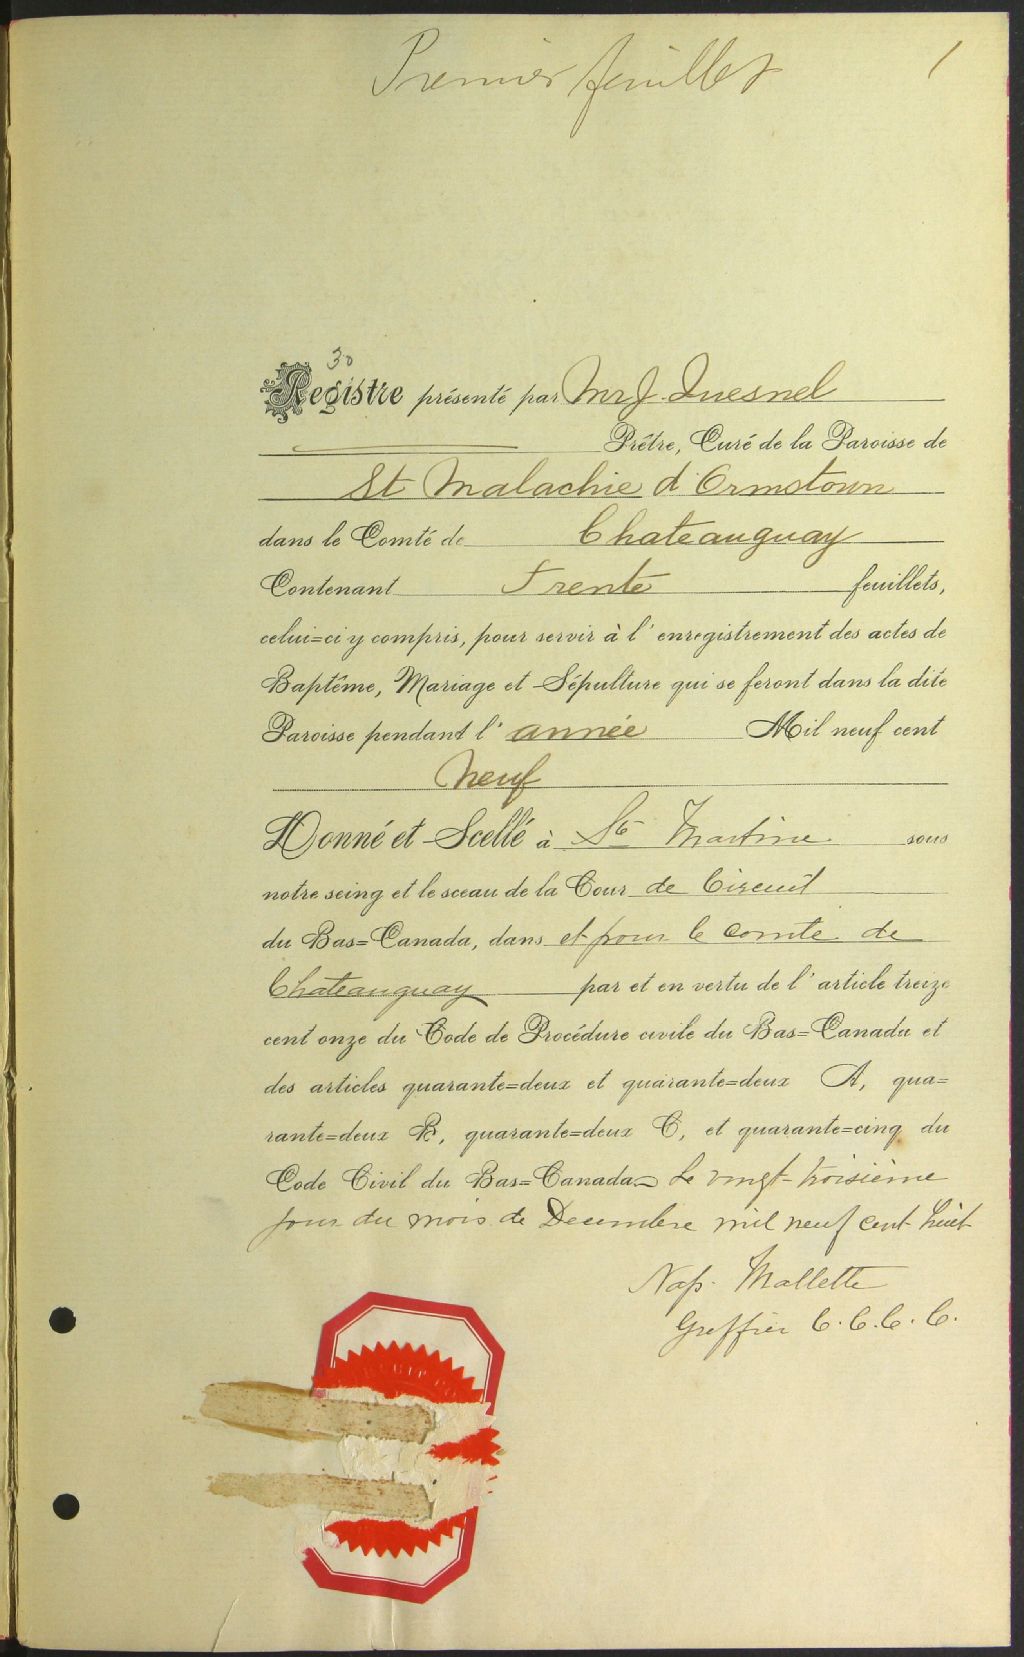 Premier feuillet
1
30
Registre présenté par Mr J. Quesnel
Prêtre, Curé de la Paroisse de
St Malachie d'Ormstown
dans le Comté de Chateauguay
Contenant Trente feuillets,
celui=ci y compris, pour servir à l'enregistrement des actes de
Baptême, Mariage et Sépulture qui se feront dans la dite
Paroisse pendant l'année Mil neuf cent
Neuf
Donné et Scellé à Ste Martine sous
notre seing et le sceau de la Cour de Circuit
du Bas=Canada, dans et pour le comte de
Chateauguay par et en vertu de l'article treize
cent onze du Code de Procédure civile du Bas=Canada et
des articles quarante=deux et quarante=deux A, qua=
rante=deux B, quarante=deux C, et quarante=cinq du
Code Civil du Bas=Canada. Le vingt-troisième
jour du mois de Decembre mil neuf cent huit
Nap. Mallette
Greffier C.C.C.C.